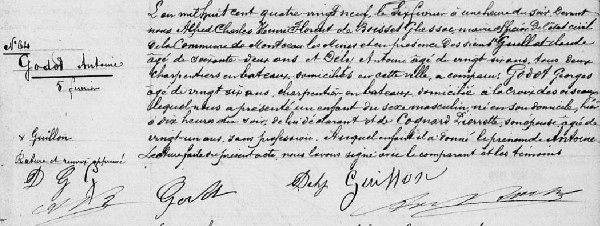 L'an mil huit cent quatre vingt neuf, le six février à une heure du soir, devant
nous Alfred Charles Henri Florent de Boisset Glassac maire officier de l'état civil
de la Commune de Montceau les Mines et en présence des sieurs Guillot claude
âgé de soixante deux ans et Dely Antoine âgé de vingt six ans, tous deux
Charpentiers en bateaux domiciliés en cette ville, a comparu: Godot Georges
âgé de vingt six ans, charpentier en bateaux domicilié à la Croix des oiseaux
lequel nous a présenté un enfant du sexe masculin, né en son domicile, hier
à dix heures du soir, de lui déclarant et de Cognard Pierrette, son épouse, âgée de
vingt un ans, sans profession. Auquel enfant il a donné le prénom de Antoine
Lecture faite du présent acte, nous l'avons signé avec le comparant et les témoins
N° 64
Godot Antoine
6 février
x Guillon
Rature et renvoi approuvé
D G G
Godot Guillon